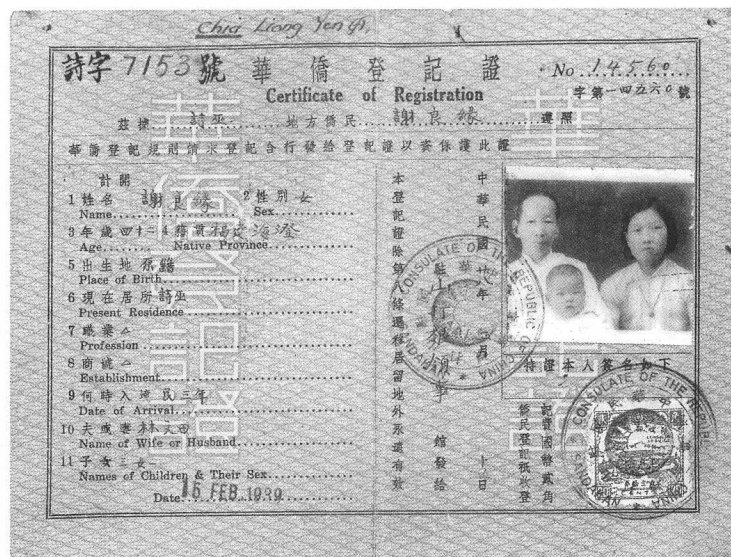 Chia Liong Yen
詩字 7153 號 華僑登記證 No 14560
Certificate of Registration 字第一四五六〇號
茲據 詩巫 地方僑民 謝良緣 遵照
華僑登記規則請求登記合行發給登記證以資保護此證
計開
1 姓名 謝良緣 2 性別 女
Name Sex
3 年歲 四十二 4 籍貫 福建海澄
Age Native Province
5 出生地
Place of Birth
6 現在居所 詩巫
Present Residence
7 職業
Profession
8 商號
Establishment
9 何時入境 民三年
Date of Arrival
10 夫或妻 林文田
Name of Wife or Husband
11 子女 三女
Names of Children & Their Sex
Date 15 FEB 1939
本登記證除第八條遷移居留地外永遠有效
中華民國 年 月 日
館發給
CONSULATE OF THE REPUBLIC OF CHINA
SANDAKAN
持證本人簽名如下
記證國幣貳角
僑民登記祇收登
CONSULATE OF THE REPUBLIC
SANDAKAN
CHINA